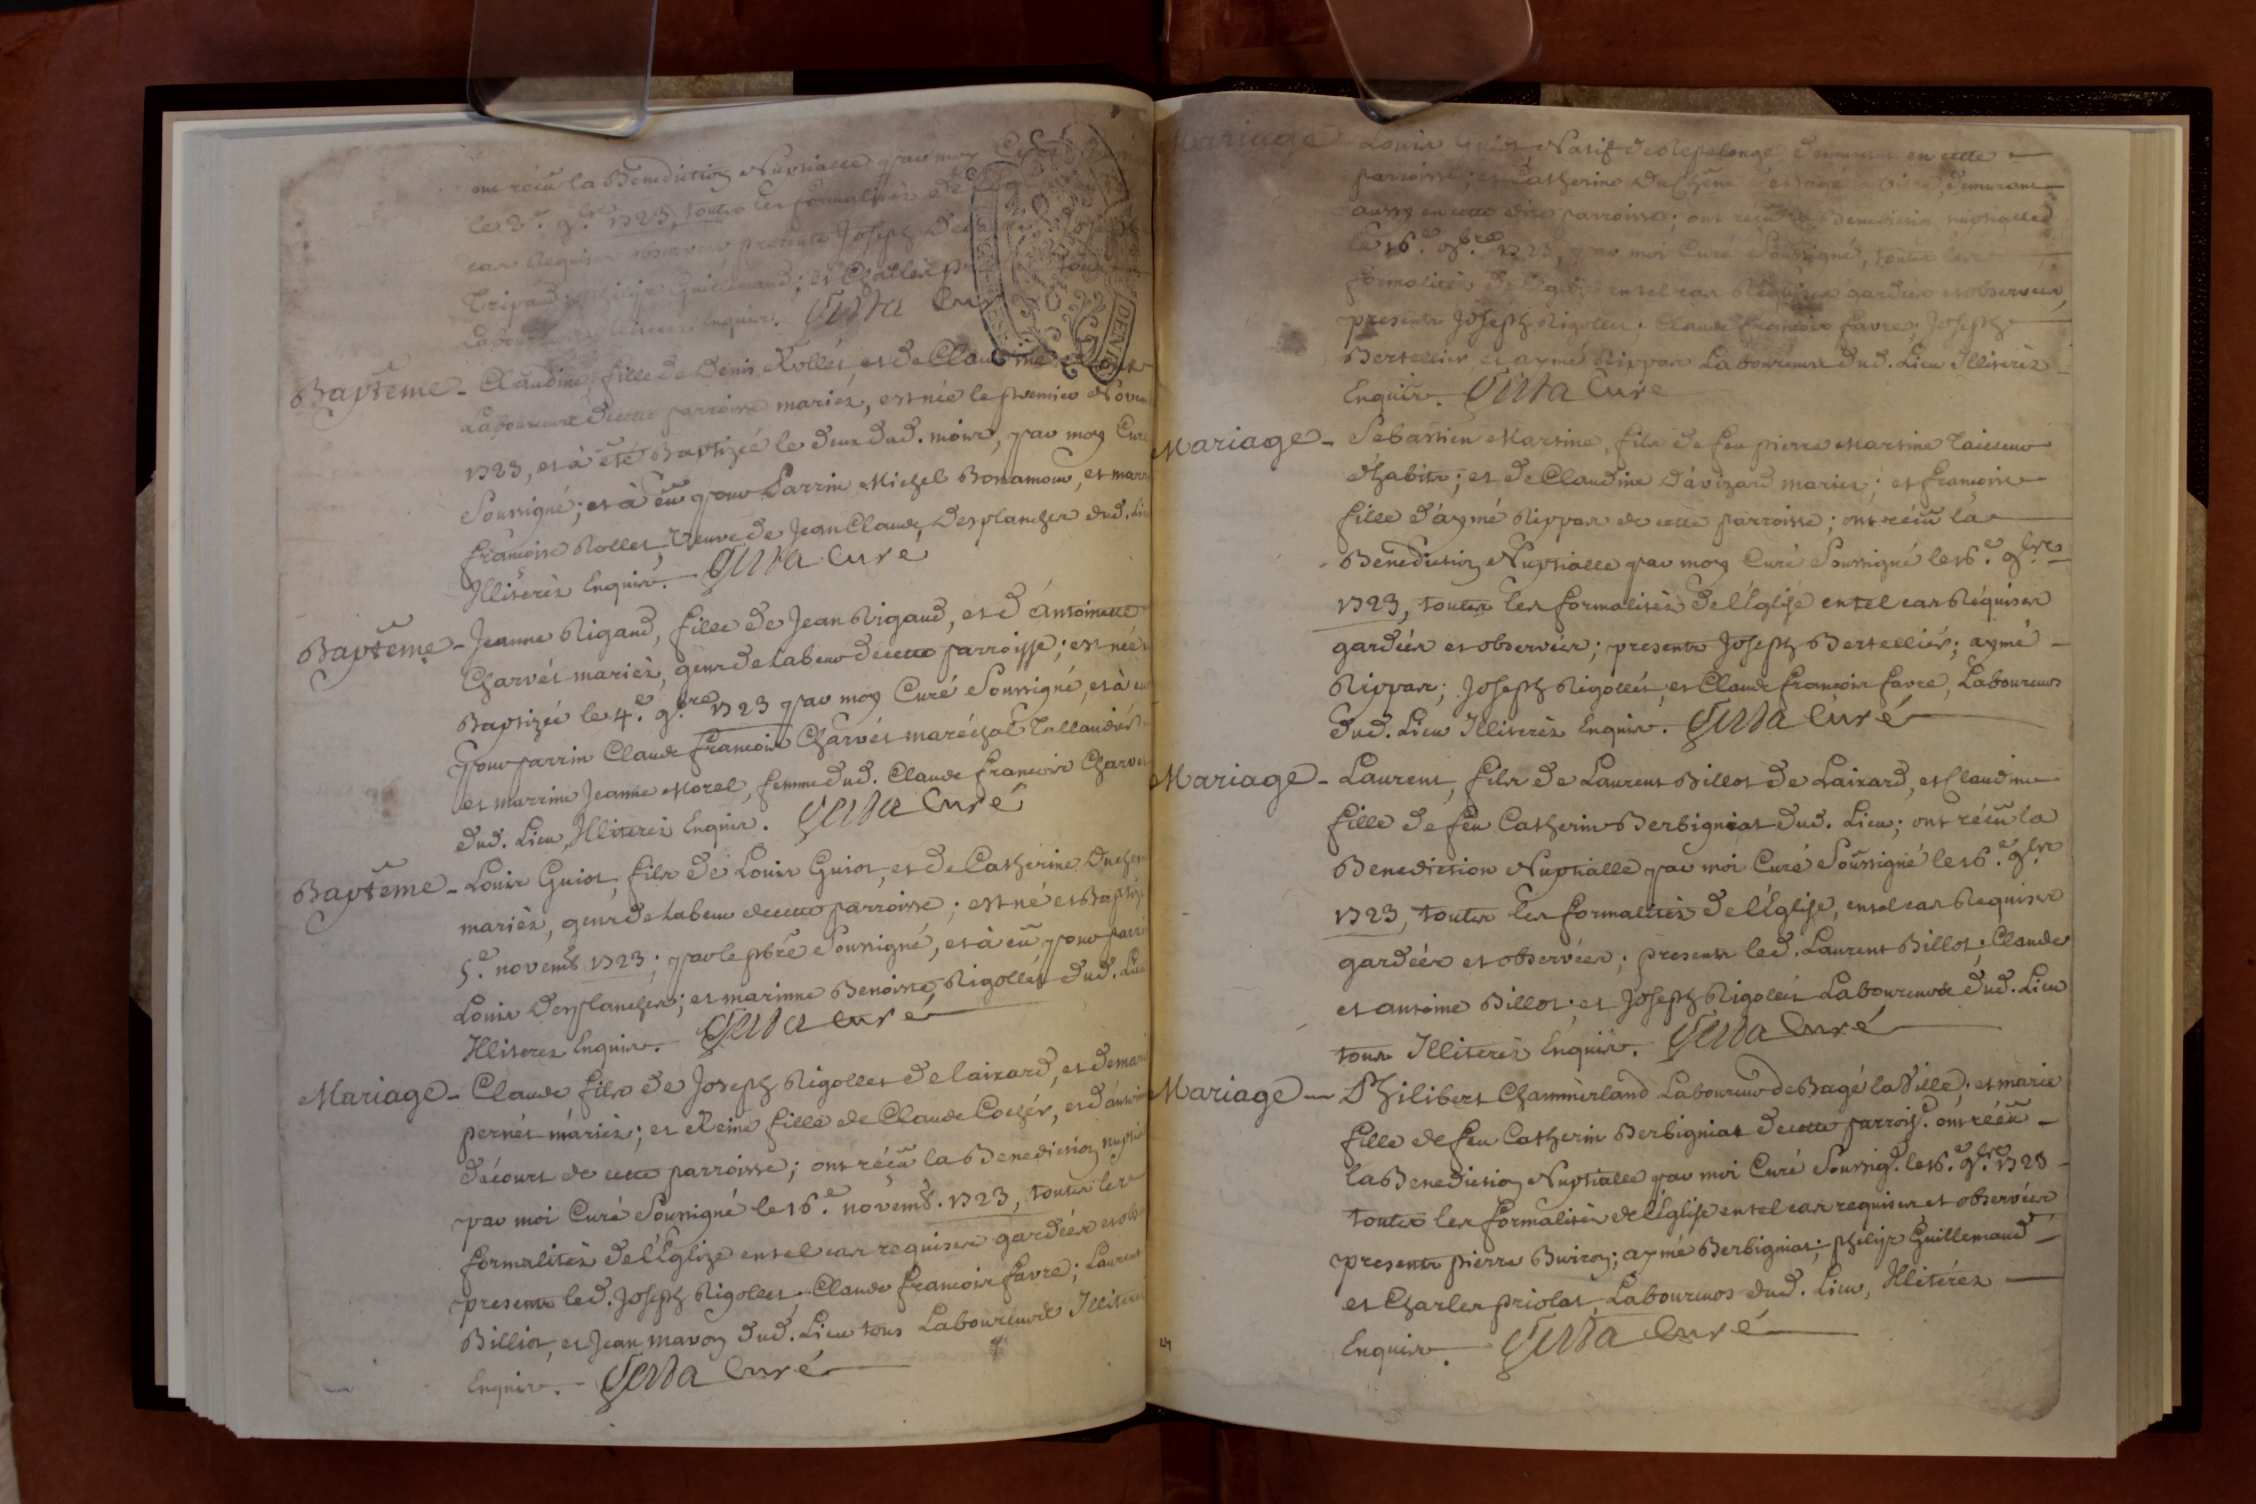 ont réçu la Benediction Nuptialle par moy
le 3.e 9.bre 1723, toutes les formalitéz de
cas Requises observées presents Joseph
Tripard; philipe Guillemaud; et Charles
Laboureurs Enquis. Curé
Baptême - Claudine fille de Denis Rollet, et de Claudine
Laboureurs de cette parroisse mariéz, est née le premier Novem
1723, et à été Baptizée le deux dud. mois, par moy Curé
Soussigné; et à eu pour Parrin Michel Bonamour, et marr
francoise Rollet Veuve de Jean Claude Desplanches dud. Lieu
Illiteréz Enquis. Curé
Baptême - Jeanne Rigaud, fille de Jean Rigaud, et d'Antoinette
Charvét mariéz, gens de labeur de cette parroisse; est née
Baptizée le 4.e 9.bre 1723 par moy Curé Soussigné, et à eu
pour parrin Claude francois Charvét maréchal Tallandier
et marrine Jeanne Morel, femme dud. Claude francois Charvet
dud. Lieu, Illiteréz Enquis. Curé
Baptême - Louis Guiot, fils de Louis Guiot, et de Catherine Duchesne
mariéz, gens de labeur de cette parroisse; est né et Baptizé
5.e novemb 1723; par le pbre Soussigné, et à eu pour parrin
Louis Desplanches; et marinne Benoiste Rigollét dud. Lieu
Illiterez Enquis. Curé
Mariage - Claude fils de Joseph Rigollet de laizard, et de marie
pernét mariéz; et Reine fille de Claude Cochét, et d'antoine
décourt de cette parroisse; ont réçu la Benediction nuptia
par moi Curé Soussigné le 16.e novemb. 1723, toutes les
formalitéz de l'Eglize en tel cas requises gardées et obs
presents led. Joseph Rigollet, Claude francois favre; Laurent
Billiot, et Jean mavoz dud. Lieu tous Laboureurs Illiteréz
Enquis. Curé
Mariage Louis Guiot Natif de Replonge demeurant en cette
parroisse; et Catherine Duchêne demurant
aussy en cette dite parroisse; ont réçu la Benediction nuptialle
le 16.e 9.bre 1723, par moi Curé Soussigné, toutes les
formalitéz de l'Eglise en tel cas Requises gardées et observées,
presents Joseph Rigollet; Claude francois favre; Joseph
Bertellier et aymé Rippas Laboureurs dud. Lieu Illiteréz
Enquis. Curé
Mariage - Sebastien Martine, fils de feu pierre Martine Tailleur
d'habits; et de Claudine Davizard mariéz; et francoise
fille d'aymé Rippas de cette parroisse; ont réçu la
Benediction Nuptialle par moy Curé Soussigné le 16.e 9.bre
1723, toutes les formalitéz de l'Eglise en tel cas Réquises
gardées et observées; presents Joseph Bertelliér; aymé
Rippas; Joseph Rigollét et Claude francois favre, Laboureurs
dud. Lieu Illiteréz Enquis. Curé
Mariage - Laurent, fils de Laurent Billot de Laizard, et Claudine
fille de feu Catherin Berbigniat dud. Lieu; ont réçu la
Benediction Nuptialle par moi Curé Soussigné le 16.e 9.bre
1723, toutes les formalitéz de l'Eglise, en tel cas Requises
gardées et observées; presents led. Laurent Billot; Claude
et antoine Billot; et Joseph Rigollét Laboureurs dud. Lieu
tous Illiteréz Enquis. Curé
Mariage - Philibert Chammerland Laboureur de Bagé la Ville; et marie
fille de feu Catherin Berbigniat de cette parroiss. ont réçu
la Benediction Nuptialle par moi Curé Soussig. le 16.e 9.bre 1723
toutes les formalitéz de l'Eglise en tel cas requises et observées
presents pierre Buiroz; aymé Berbigniat; philipe Guillemaud
et Charles priolat, Laboureurs dud. Lieu, Illiteréz
Enquis. Curé